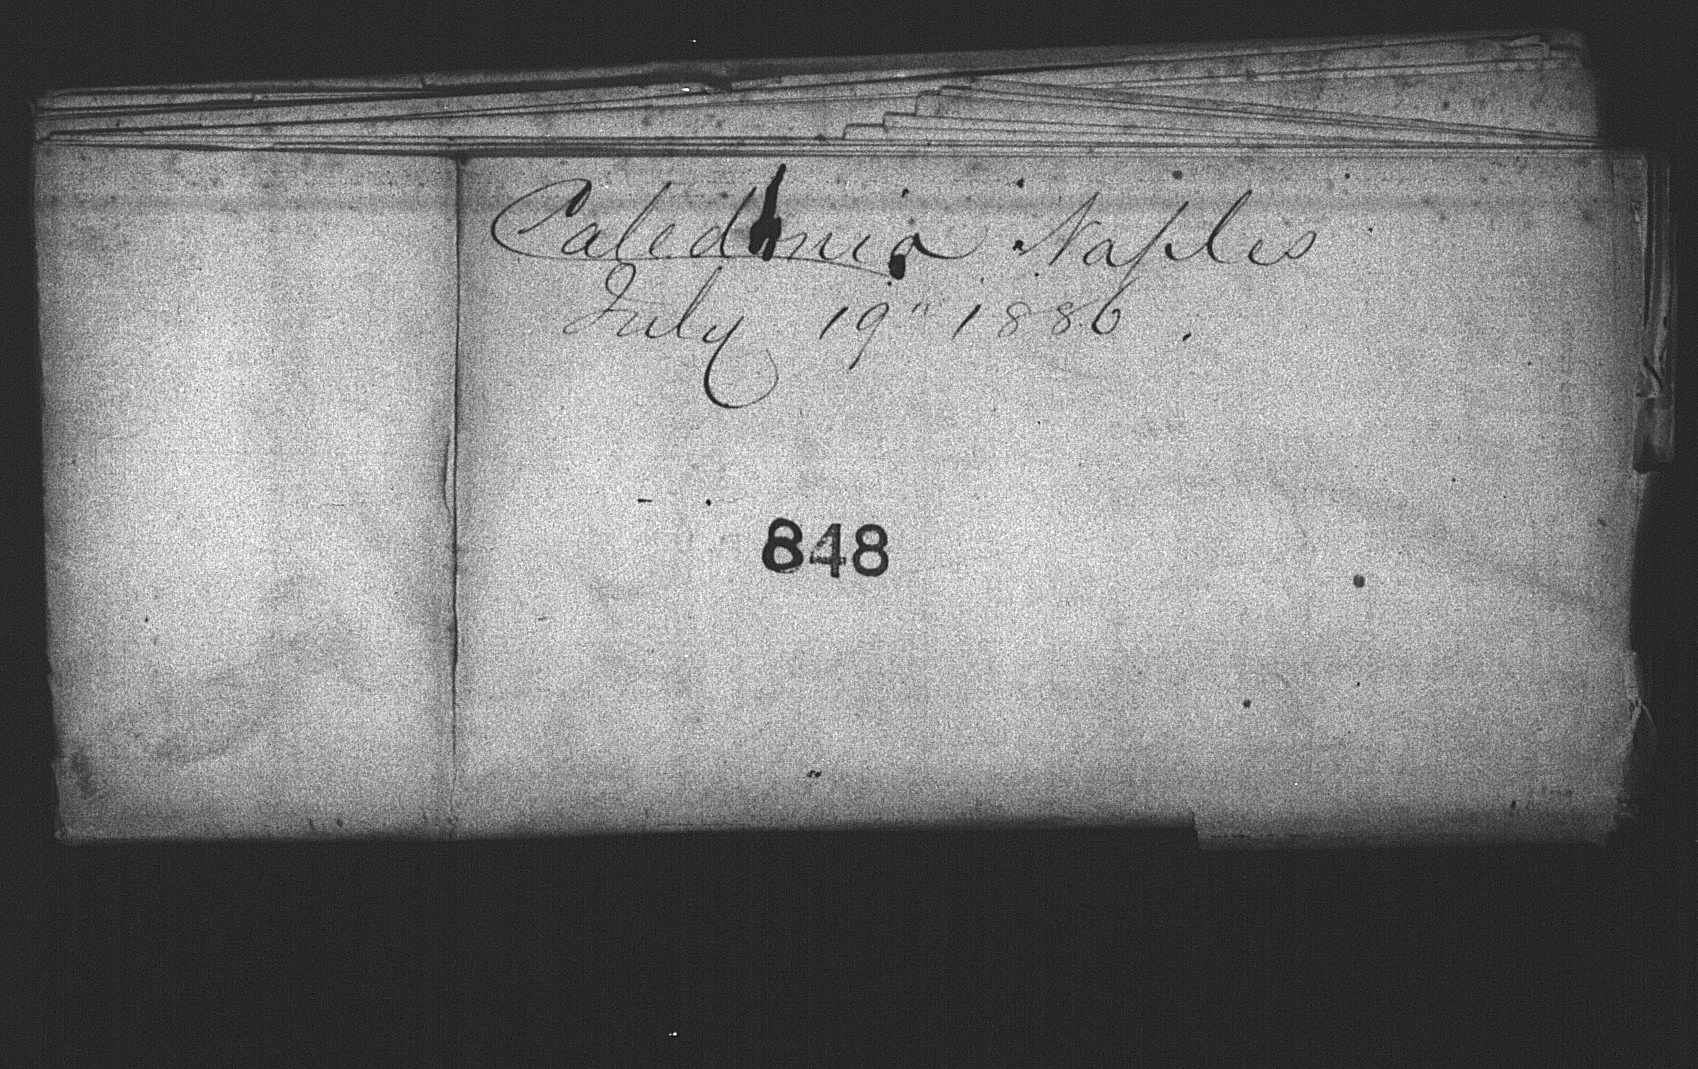 Caledonia Naples
July 19" 1886.
848